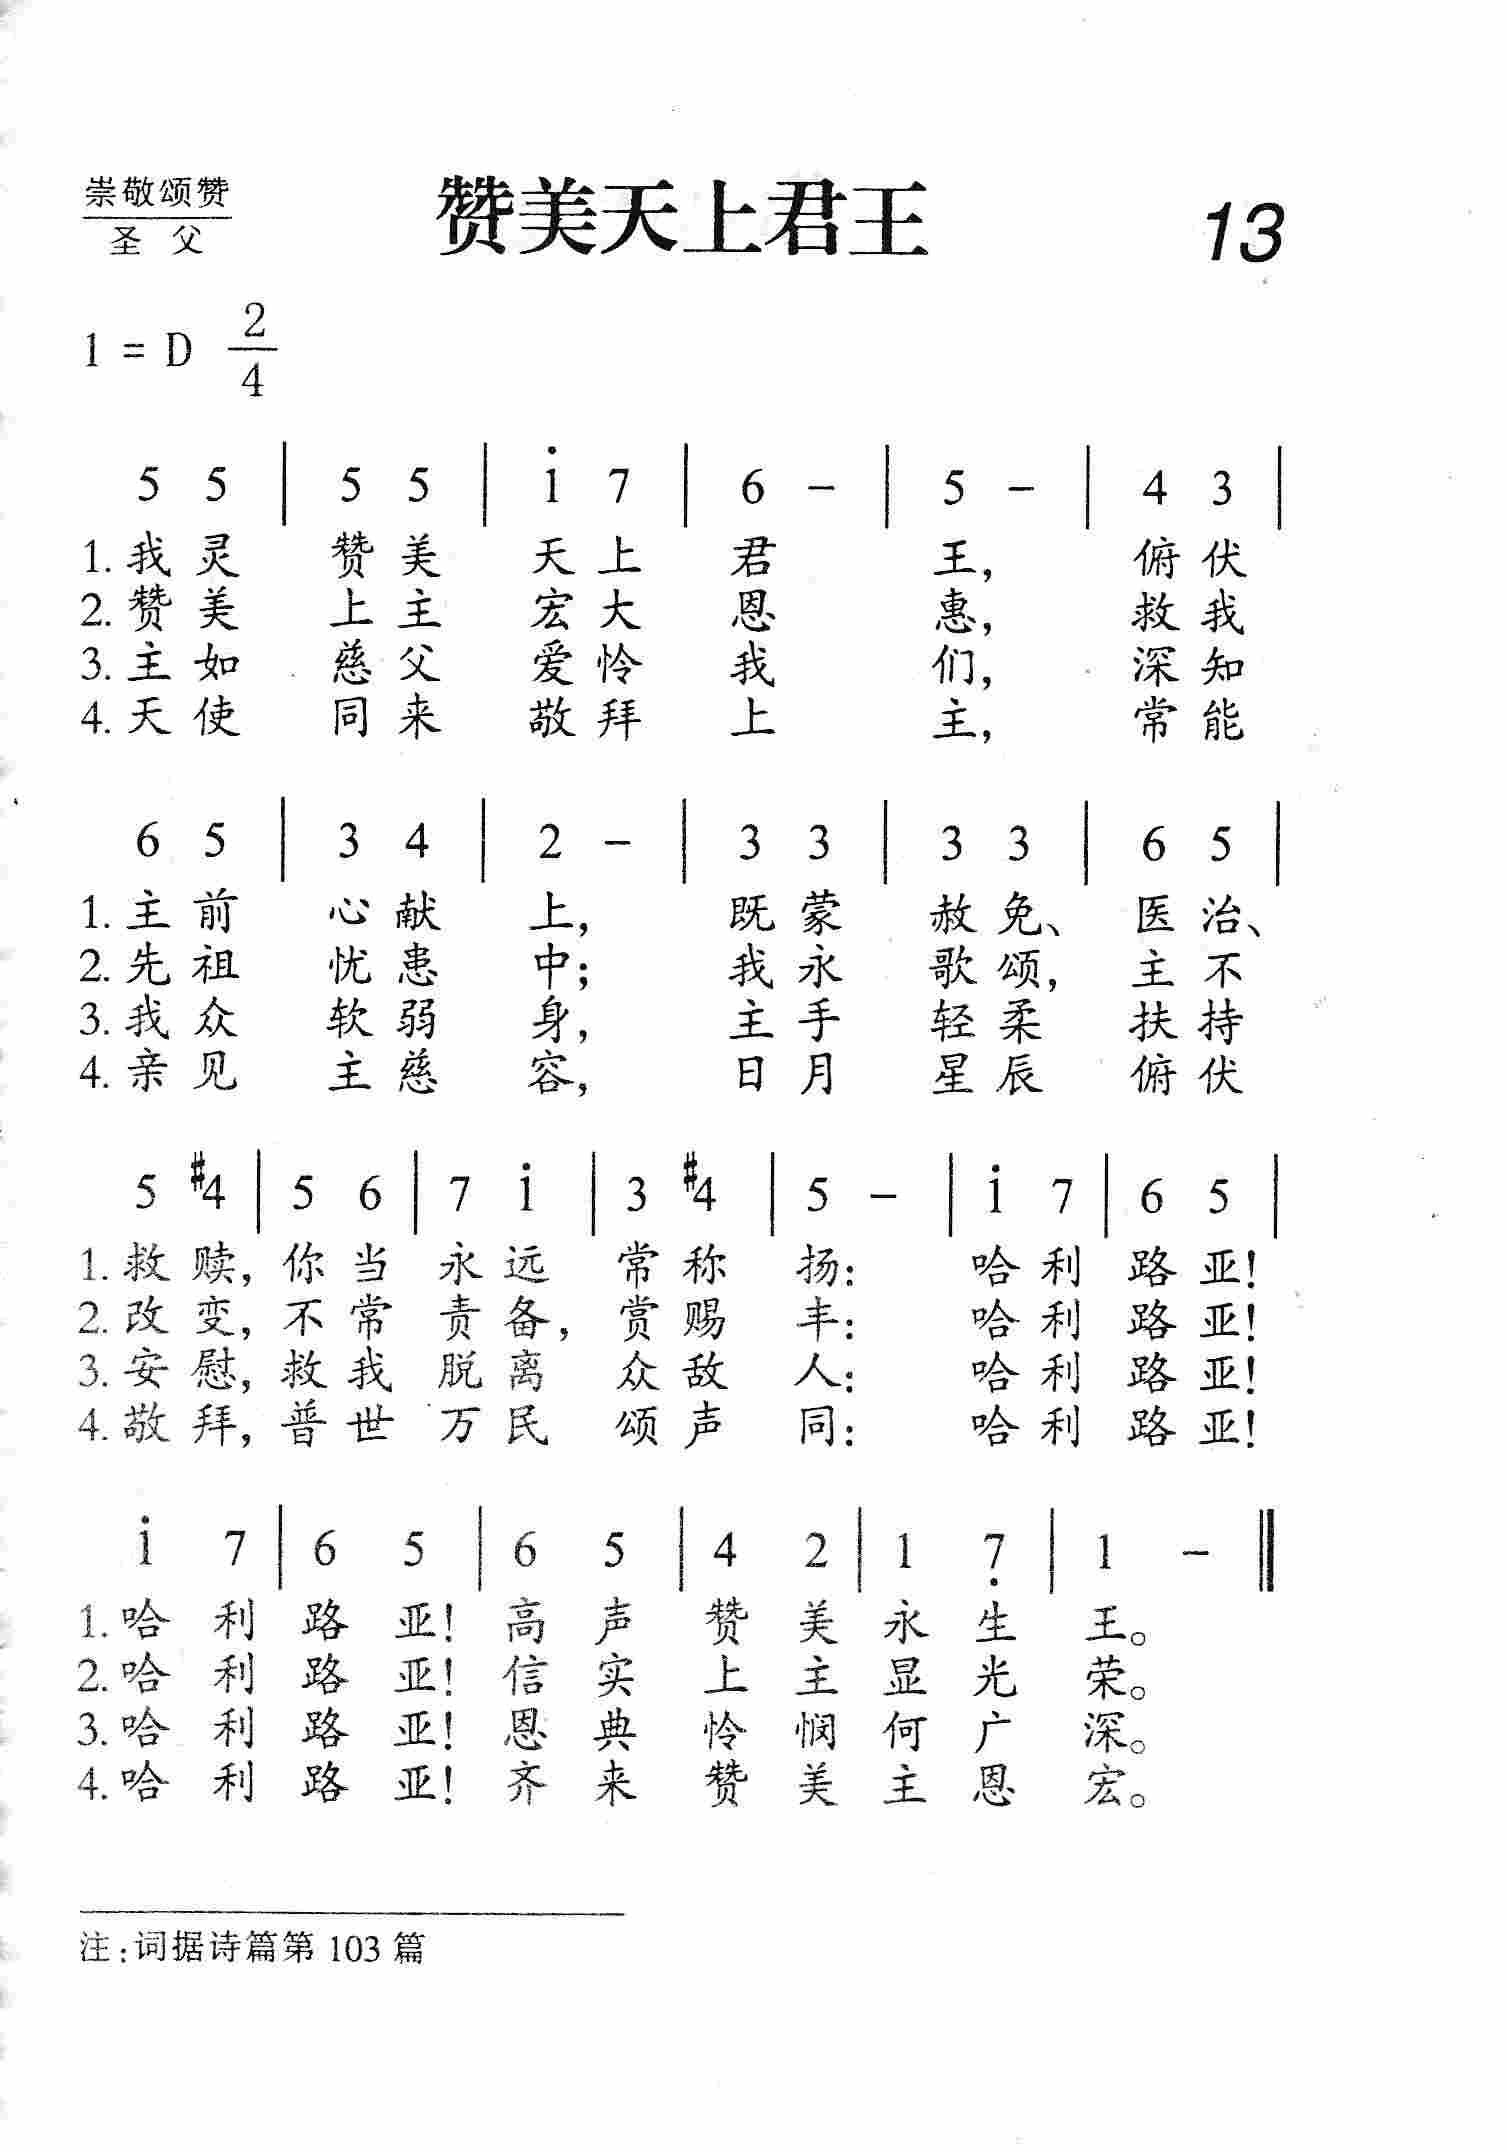 崇敬颂赞
圣父
赞美天上君王
13
1 = D 2/4
5 5 | 5 5 | i 7 | 6 - | 5 - | 4 3 |
1. 我灵 赞美 天上 君 王, 俯伏
2. 赞美 上主 宏大 恩 惠, 救我
3. 主如 慈父 爱怜 我 们, 深知
4. 天使 同来 敬拜 上 主, 常能
6 5 | 3 4 | 2 - | 3 3 | 3 3 | 6 5 |
1. 主前 心献 上, 既蒙 赦免、 医治、
2. 先祖 忧患 中; 我永 歌颂, 主不
3. 我众 软弱 身, 主手 轻柔 扶持
4. 亲见 主慈 容, 日月 星辰 俯伏
5 #4 | 5 6 | 7 i | 3 #4 | 5 - | i 7 | 6 5 |
1. 救赎, 你当 永远 常称 扬: 哈利 路亚!
2. 改变, 不常 责备, 赏赐 丰: 哈利 路亚!
3. 安慰, 救我 脱离 众敌 人: 哈利 路亚!
4. 敬拜, 普世 万民 颂声 同: 哈利 路亚!
i 7 | 6 5 | 6 5 | 4 2 | 1 7̣ | 1 - ‖
1. 哈利 路亚! 高声 赞美 永生 王。
2. 哈利 路亚! 信实 上主 显光 荣。
3. 哈利 路亚! 恩典 怜悯 何广 深。
4. 哈利 路亚! 齐来 赞美 主恩 宏。
注:词据诗篇第 103 篇